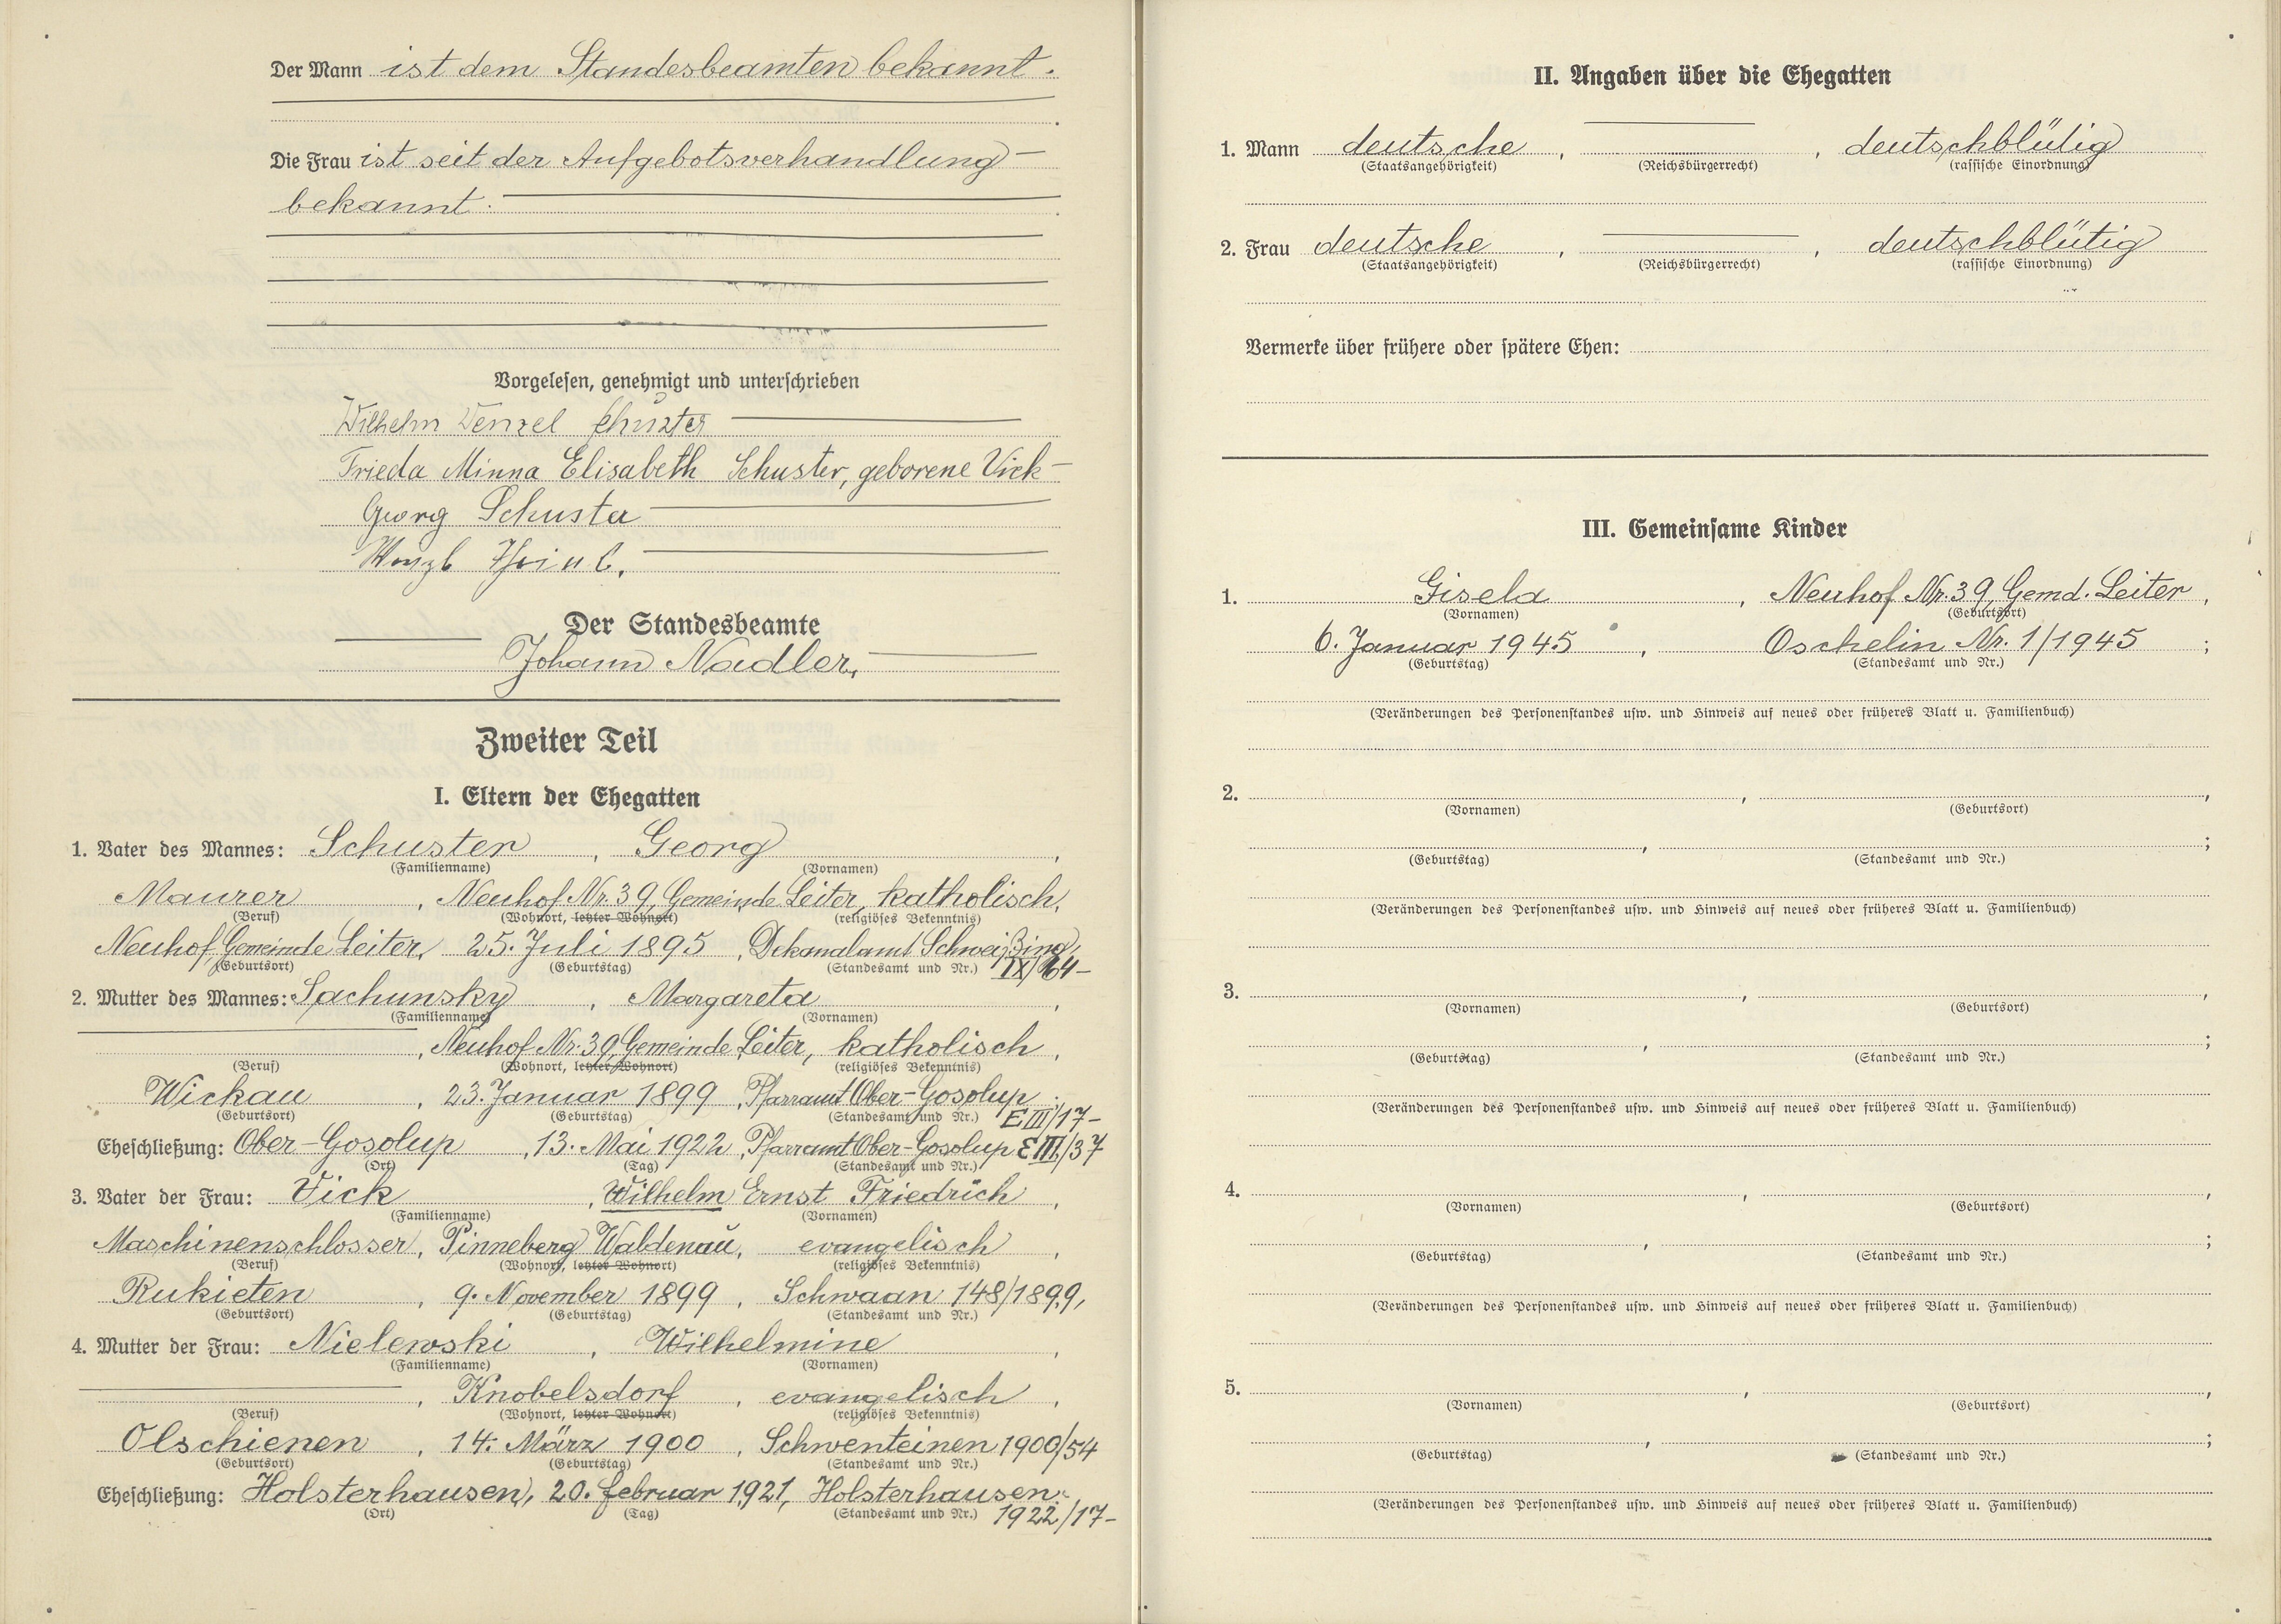 Der Mann ist dem Standesbeamten bekannt.
Die Frau ist seit der Aufgebotsverhandlung
bekannt.
Vorgelesen, genehmigt und unterschrieben
Wilhelm Wenzel Schuster
Frieda Minna Elisabeth Schuster, geborene Vick
Georg Schuster
Der Standesbeamte
Johann Nadler,
Zweiter Teil
I. Eltern der Ehegatten
1. Vater des Mannes: Schuster, Georg,
(Familienname) (Vornamen)
Maurer, Neuhof Nr. 39, Gemeinde Leiter, katholisch,
(Beruf) (Wohnort, letzter Wohnort) (religiöses Bekenntnis)
Neuhof, Gemeinde Leiter, 25. Juli 1895, Dekanalamt Schweißing,
(Geburtsort) (Geburtstag) (Standesamt und Nr.) IX/64-
2. Mutter des Mannes: Sachunsky, Margareta,
(Familienname) (Vornamen)
, Neuhof Nr. 39, Gemeinde Leiter, katholisch,
(Beruf) (Wohnort, letzter Wohnort) (religiöses Bekenntnis)
Wickau, 23. Januar 1899, Pfarramt Ober-Gosolup
(Geburtsort) (Geburtstag) (Standesamt und Nr.) E III/17-
Eheschließung: Ober-Gosolup, 13. Mai 1922, Pfarramt Ober-Gosolup E III/37
(Ort) (Tag) (Standesamt und Nr.)
3. Vater der Frau: Vick, Wilhelm Ernst Friedrich,
(Familienname) (Vornamen)
Maschinenschlosser, Pinneberg Waldenau, evangelisch,
(Beruf) (Wohnort, letzter Wohnort) (religiöses Bekenntnis)
Rukieten, 9. November 1899, Schwaan 148/1899,
(Geburtsort) (Geburtstag) (Standesamt und Nr.)
4. Mutter der Frau: Nielewski, Wilhelmine,
(Familienname) (Vornamen)
, Knobelsdorf, evangelisch,
(Beruf) (Wohnort, letzter Wohnort) (religiöses Bekenntnis)
Olschienen, 14. März 1900, Schwenteinen 1900/54
(Geburtsort) (Geburtstag) (Standesamt und Nr.)
Eheschließung: Holsterhausen, 20. Februar 1921, Holsterhausen
(Ort) (Tag) (Standesamt und Nr.) 1922/17-
II. Angaben über die Ehegatten
1. Mann deutsche, , deutschblütig
(Staatsangehörigkeit) (Reichsbürgerrecht) (rassische Einordnung)
2. Frau deutsche, , deutschblütig
(Staatsangehörigkeit) (Reichsbürgerrecht) (rassische Einordnung)
Vermerke über frühere oder spätere Ehen:
III. Gemeinsame Kinder
1. Gisela, Neuhof Nr. 39, Gemd. Leiter,
(Vornamen) (Geburtsort)
6. Januar 1945, Oschelin Nr. 1/1945;
(Geburtstag) (Standesamt und Nr.)
(Veränderungen des Personenstandes usw. und Hinweis auf neues oder früheres Blatt u. Familienbuch)
2. , ,
(Vornamen) (Geburtsort)
, ;
(Geburtstag) (Standesamt und Nr.)
(Veränderungen des Personenstandes usw. und Hinweis auf neues oder früheres Blatt u. Familienbuch)
3. , ,
(Vornamen) (Geburtsort)
, ;
(Geburtstag) (Standesamt und Nr.)
(Veränderungen des Personenstandes usw. und Hinweis auf neues oder früheres Blatt u. Familienbuch)
4. , ,
(Vornamen) (Geburtsort)
, ;
(Geburtstag) (Standesamt und Nr.)
(Veränderungen des Personenstandes usw. und Hinweis auf neues oder früheres Blatt u. Familienbuch)
5. , ,
(Vornamen) (Geburtsort)
, ;
(Geburtstag) (Standesamt und Nr.)
(Veränderungen des Personenstandes usw. und Hinweis auf neues oder früheres Blatt u. Familienbuch)